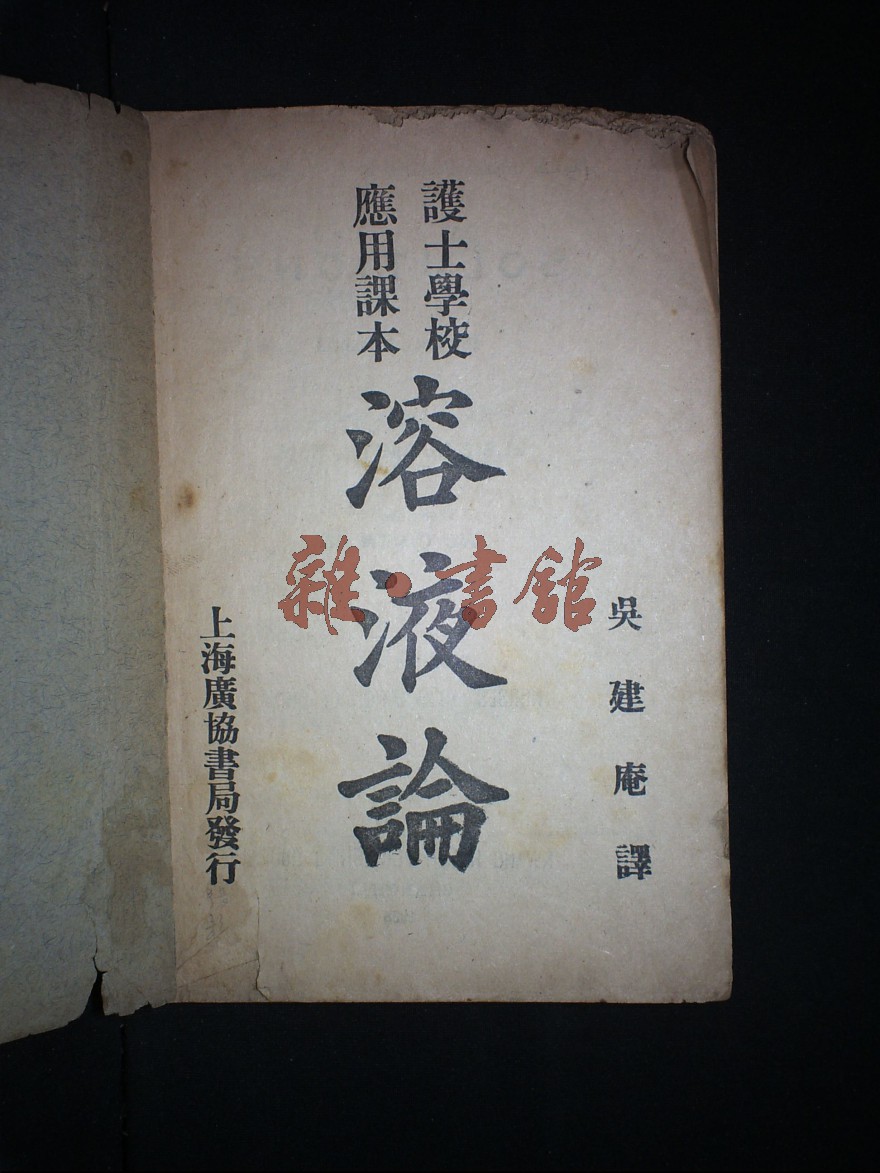 吳建庵譯
護士學校
應用課本
溶液論
上海廣協書局發行
雜·書館